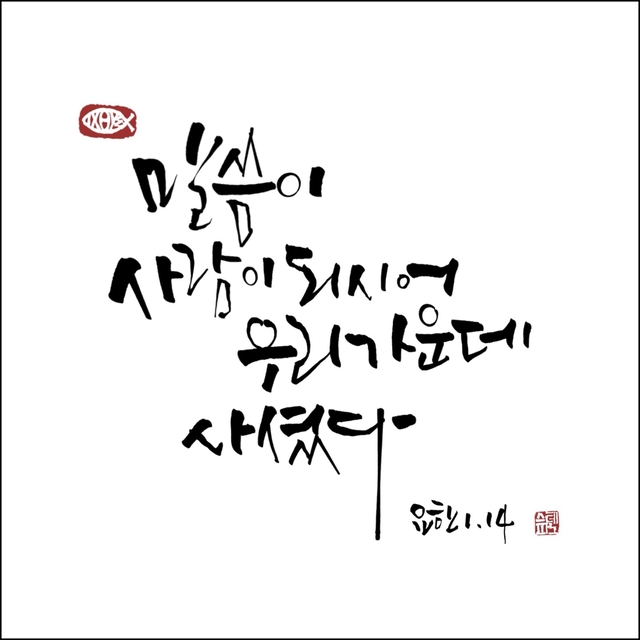 말씀이
사람이 되시어
우리 가운데
사셨다
요한 1.14